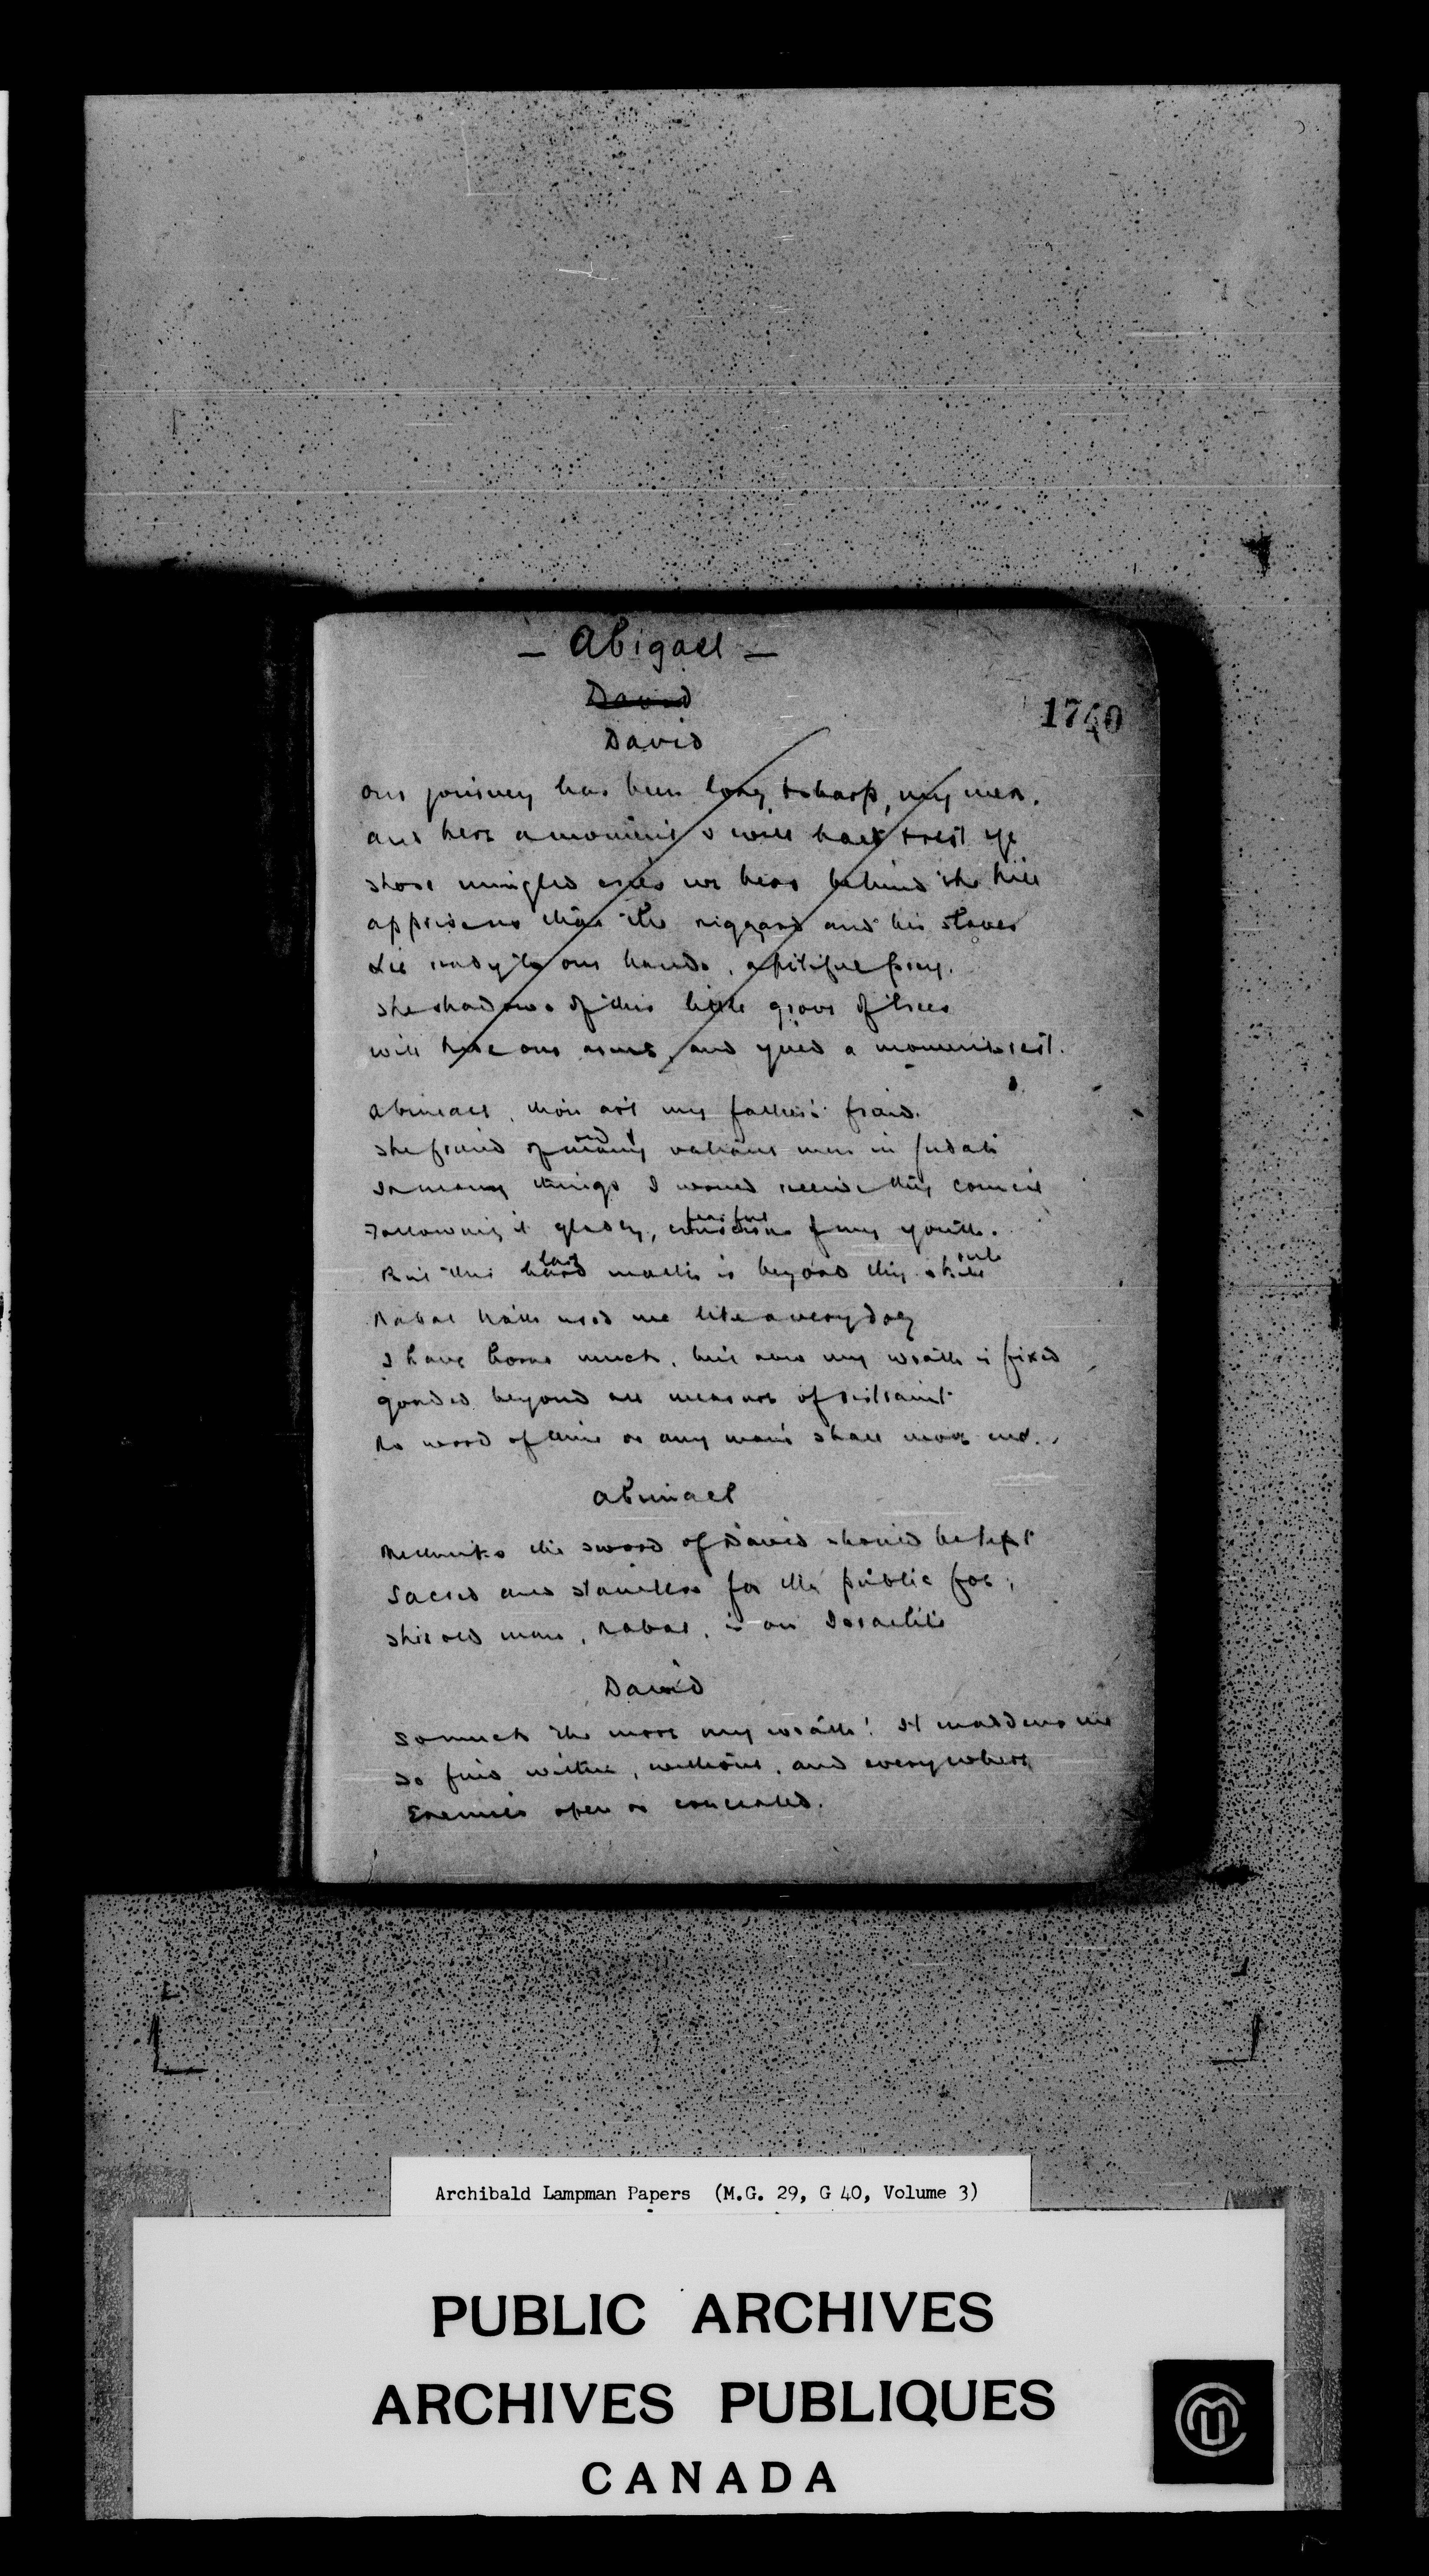 – Abigael –
David
1740
David
Our journey has been long & sharp, my men.
And here a moment I will halt & rest ye
Those mingled cries we hear behind the hill
Apprise us that the niggard and his slaves
Lie ready to our hands, a pitiful prey.
The shadows of this little grove of trees
Will hide our arms, and yield a moment's rest.
Abinael, thou art my father's friend.
The friend of many valiant men in Judah
In many things I would receive thy council
Following it gladly, of my youth.
But this hard last matter is beyond thy skill rule
Nabal hath used me like a very dog
I have borne much, but now my wrath is fixed
Goaded beyond all measure of restraint
No word of thine or any man's shall move me.
Abinael
Methinks the sword of David should be kept
Sacred and stainless for the public foe;
This old man, Nabal, is an Israelite
David
So much the more my wrath! It maddens me
To find within, without, and everywhere
Enemies open or concealed.
Archibald Lampman Papers (M.G. 29, G 40, Volume 3)
PUBLIC ARCHIVES
ARCHIVES PUBLIQUES
CANADA